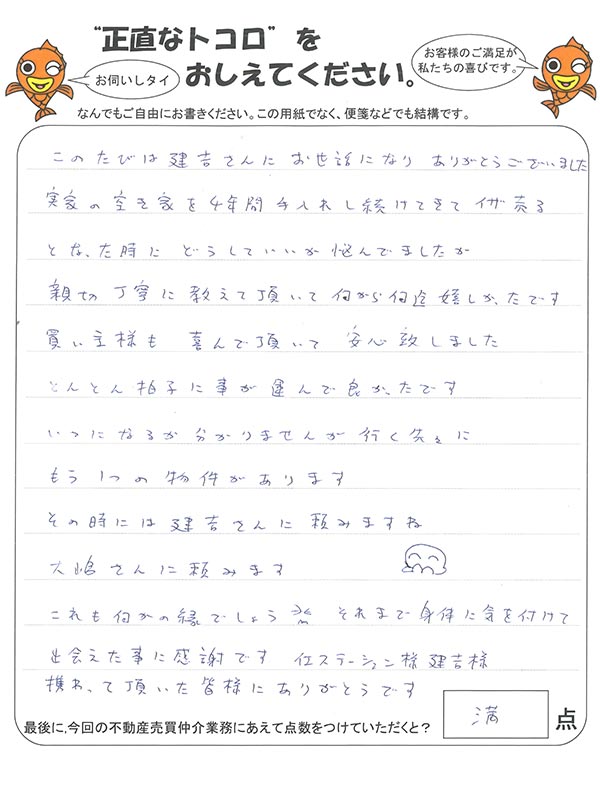 "正直なトコロ"を
おしえてください。
お伺いしタイ
お客様のご満足が
私たちの喜びです。
なんでもご自由にお書きください。この用紙でなく、便箋などでも結構です。
このたびは建吉さんにお世話になりありがとうございました
実家の空き家を4年間手入れし続けてきてイザ売る
となった時にどうしていいか悩んでましたが
親切丁寧に教えて頂いて何から何迄嬉しかったです
買い主様も喜んで頂いて安心致しました
とんとん拍子に事が運んで良かったです
いつになるか分かりませんが行く先々に
もう1つの物件があります
その時には建吉さんに頼みますね
大嶋さんに頼みます
これも何かの縁でしょう それまで身体に気を付けて
出会えた事に感謝です 住ステーション様建吉様
携わって頂いた皆様にありがとうです
最後に,今回の不動産売買仲介業務にあえて点数をつけていただくと?
満 点